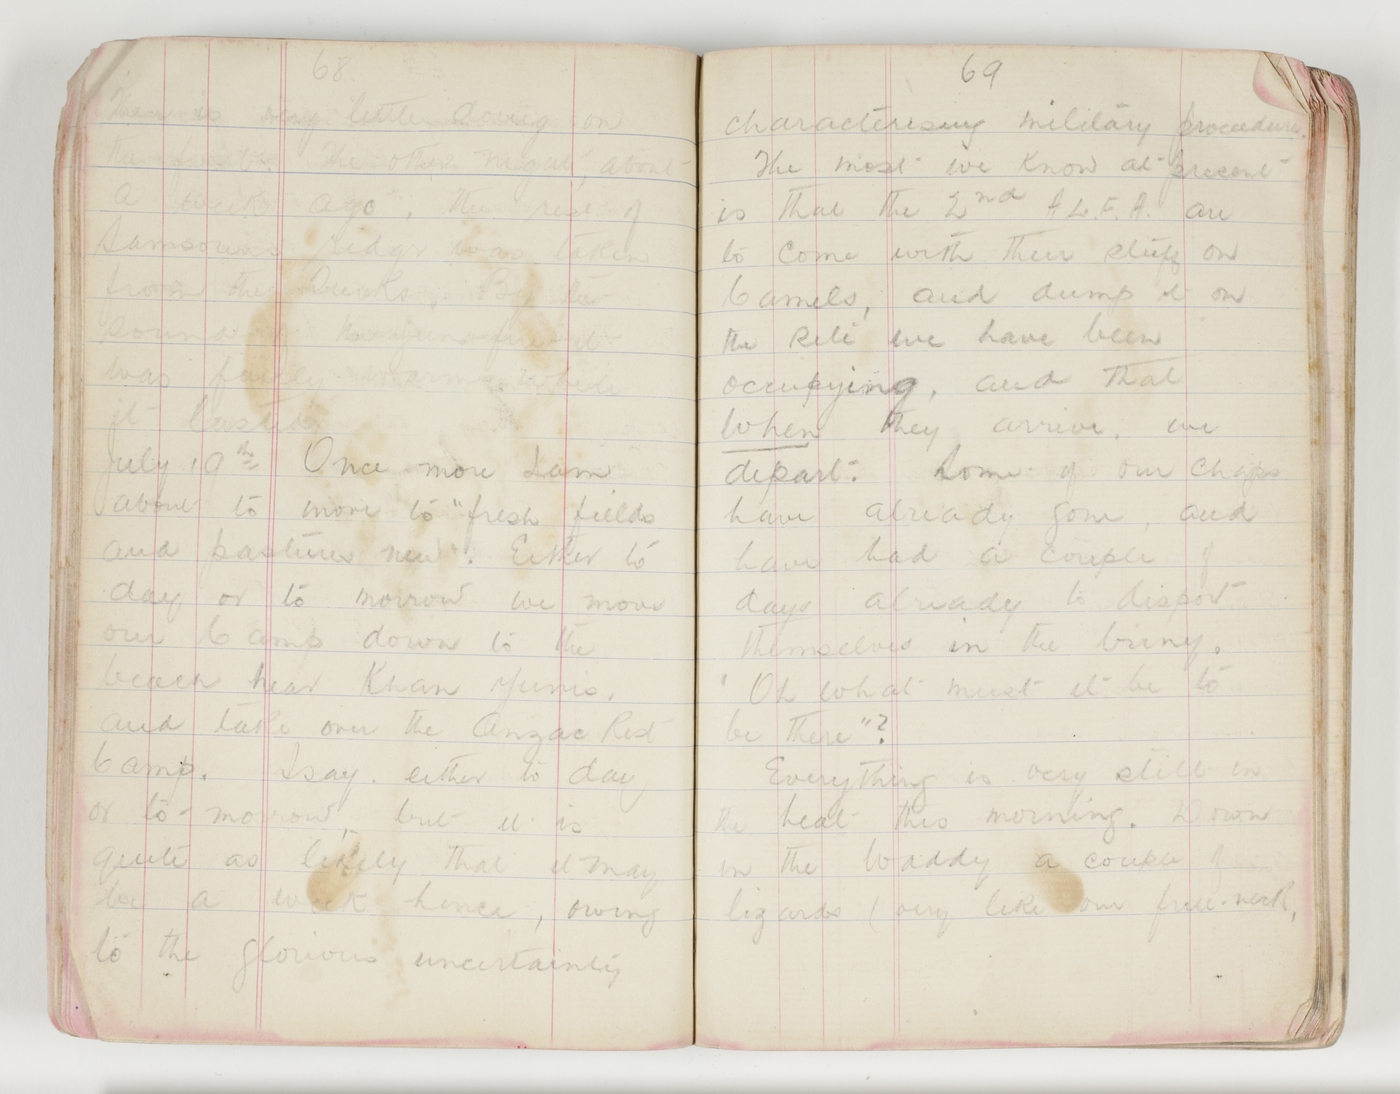 68
There is very little doing on
the front. The other night, about
a week ago, the rest of
Samsons ridge was taken
from the Turks. By the
sound of the gun fire it
was fairly warm while
it lasted.
July 19th Once more I am
about to move to "fresh fields
and pastures new". Either to
day or to morrow we move
our Camp down to the
beach near Khan Yunis,
and take over the Anzac Rest
Camp. I say either to day
or to-morrow, but it is
quite as likely that it may
be a week hence, owing
to the glorious uncertainty
69
characterising military procedure.
The most we know at present
is that the 2nd A.L.F.A. are
to come with their stuff on
Camels, and dump it on
the site we have been
occupying, and that
when they arrive, we
depart. Some of our chaps
have already gone, and
have had a couple of
days already to disport
themselves in the briny.
"Oh what must it be to
be there"?
Everything is very still in
the heat this morning. Down
in the Waddy a couple of
lizards (very like our frill-neck,